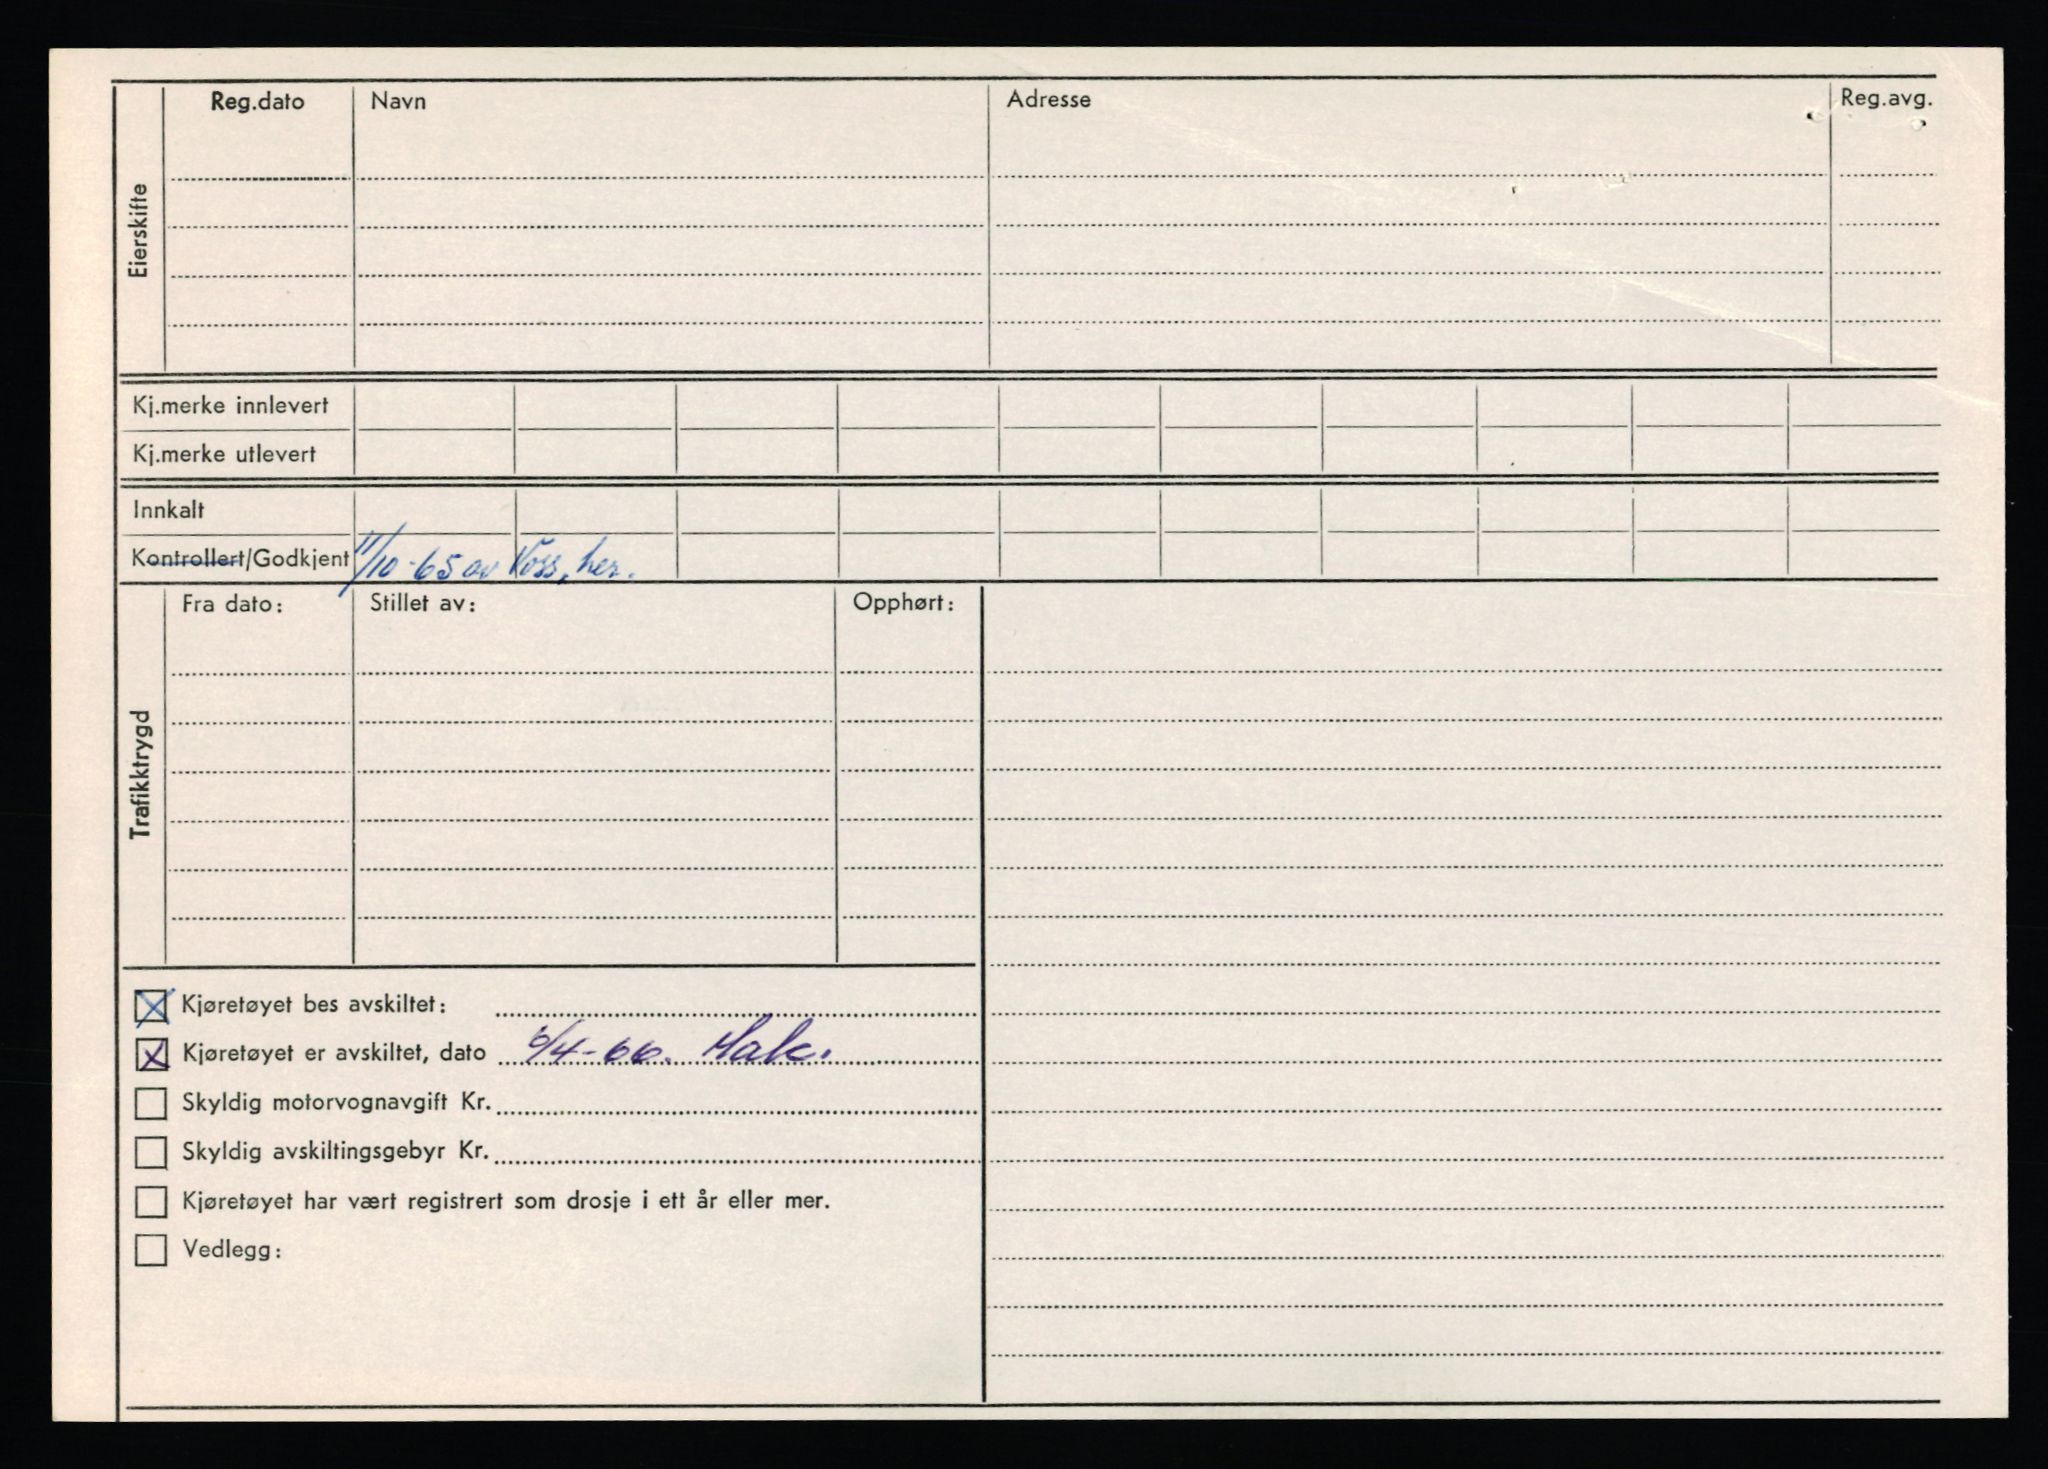 Reg.dato Navn Adresse Reg.avg.
Eierskifte
Kj.merke innlevert
Kj.merke utlevert
Innkalt
Kontrollert/Godkjent 11/10-65 av Voss, her.
Fra dato: Stillet av: Opphørt:
Trafikktrygd
Kjøretøyet bes avskiltet:
Kjøretøyet er avskiltet, dato 6/4-66. Hak.
Skyldig motorvognavgift Kr.
Skyldig avskiltingsgebyr Kr.
Kjøretøyet har vært registrert som drosje i ett år eller mer.
Vedlegg: